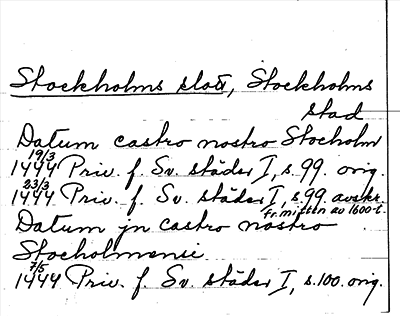 Stockholms slott, Stockholms
stad
Datum castro nostro Stocholm
19/3
1444 Priv. f. Sv. städer I, s. 99. orig.
23/3
1444 Priv. f. Sv. städer I, s. 99 avskr.
fr. mitten av 1600-t.
Datum jn castro nostro
Stocholmensi
7/5
1444 Priv. f. Sv. städer I, s. 100. orig.